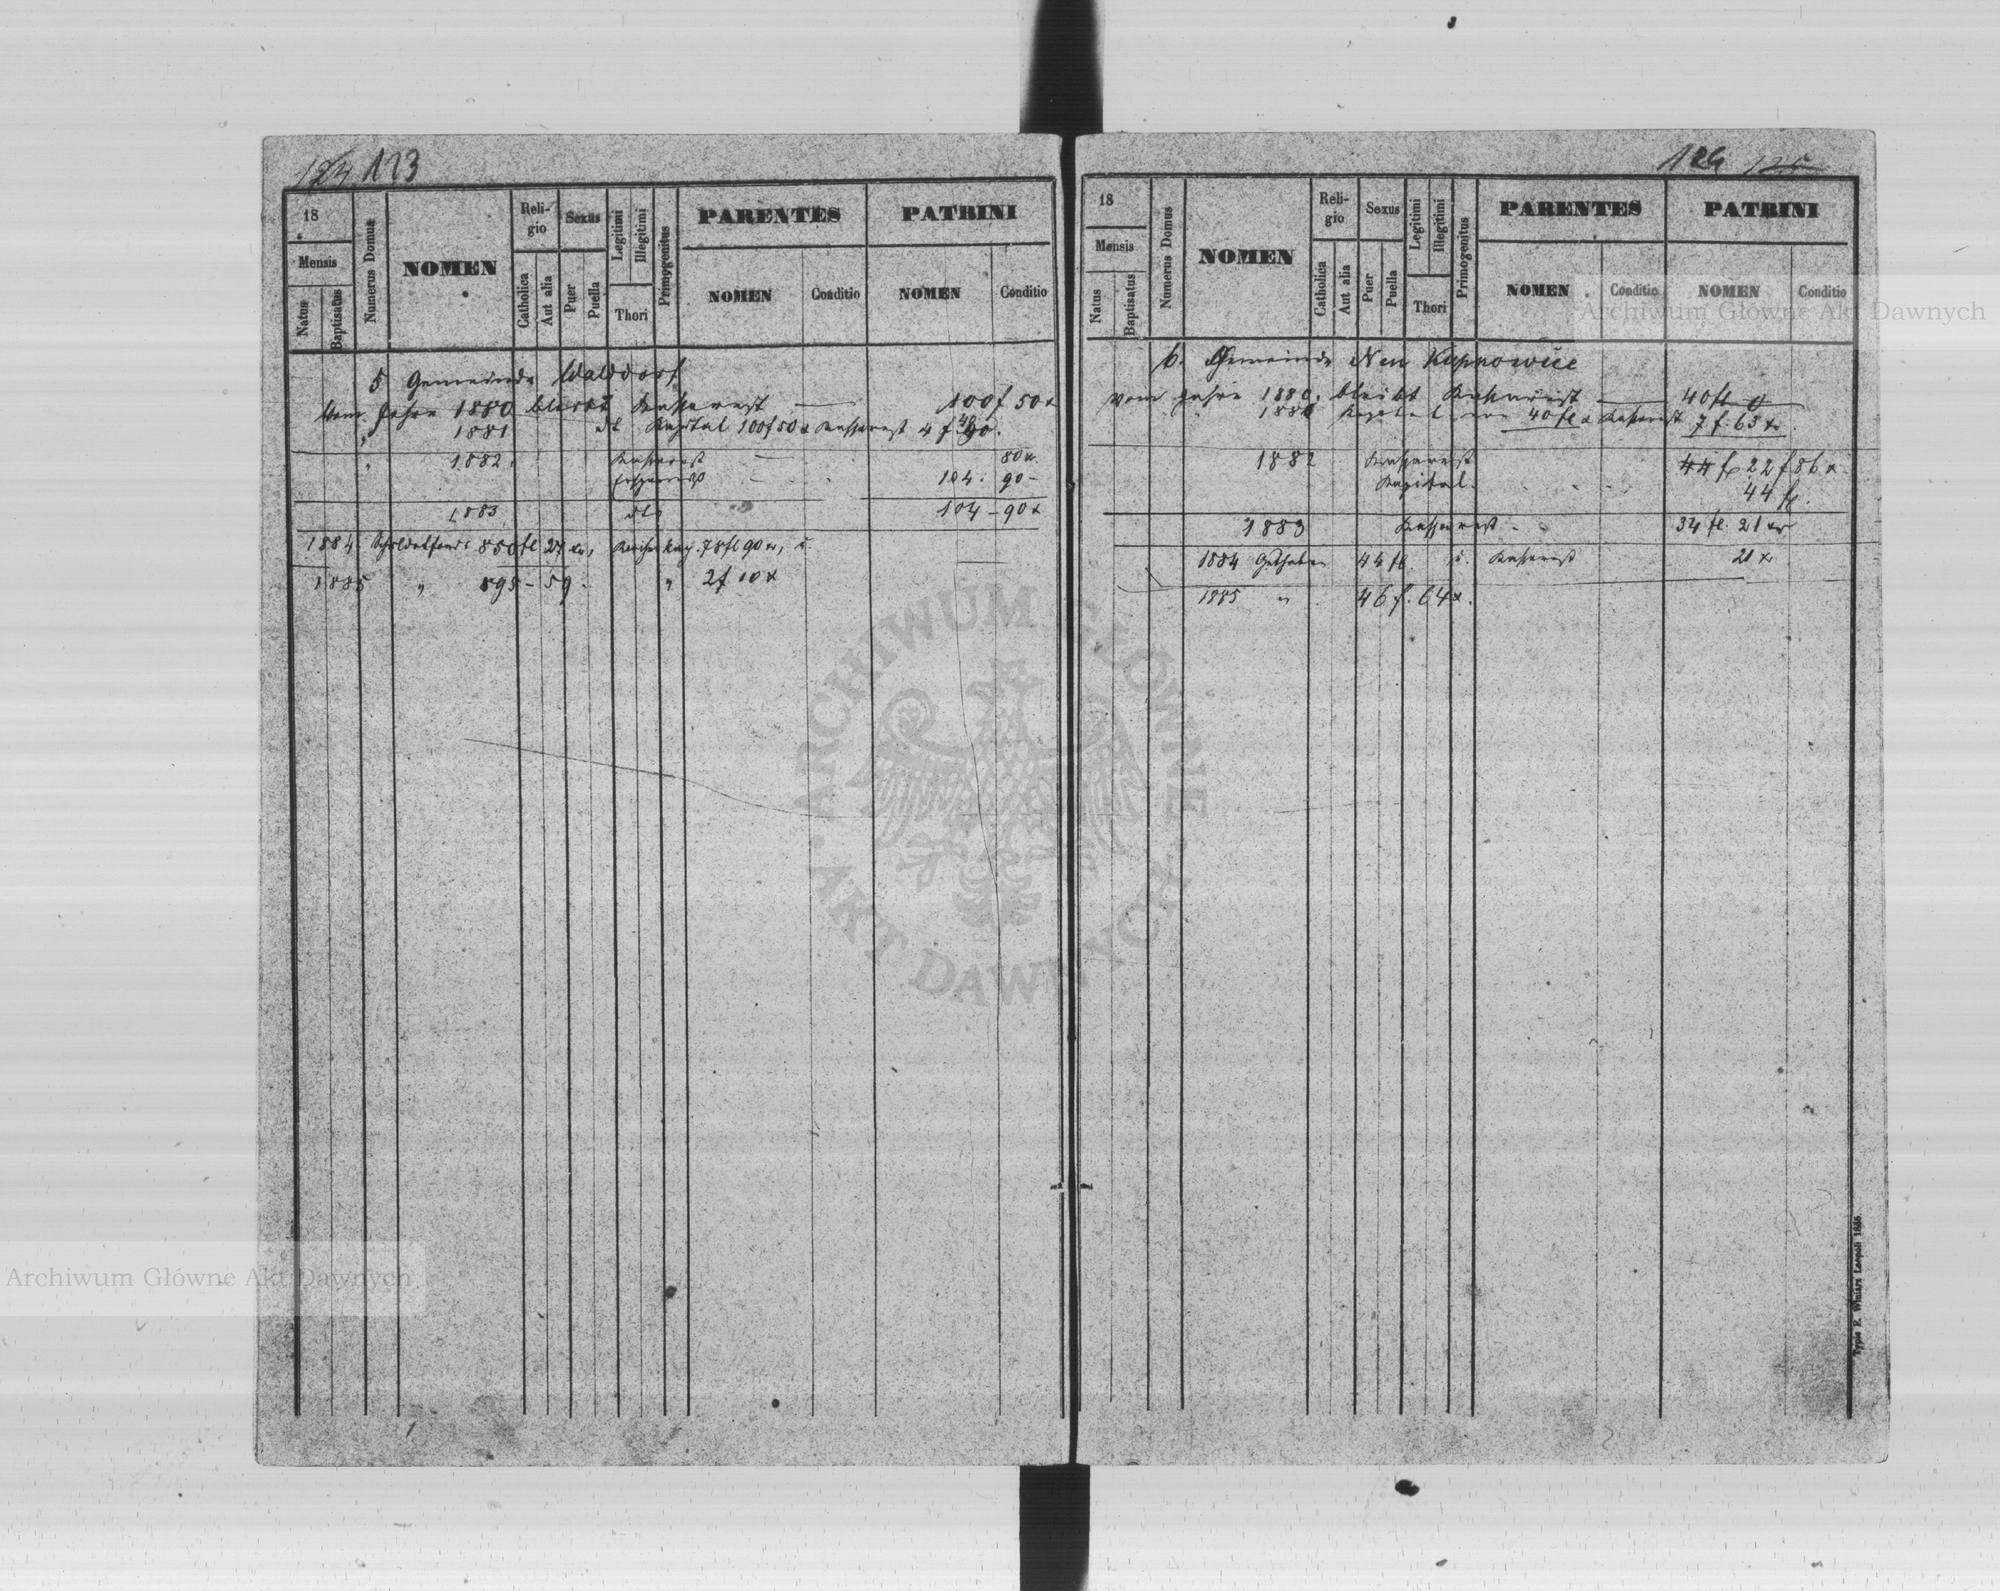 124 123
18
Mensis
Natus
Baptisatus
Numerus Domus
NOMEN
Reli-
gio
Catholica
Aut alia
Sexus
Puer
Puella
Legitimi
Illegitimi
Thori
Primogenitus
PARENTES
NOMEN
Conditio
PATRINI
NOMEN
Conditio
5 Gemeinde Walddorf
Vom Jahre 1880 bleibt Kassarest — 100f 50x
" 1881 dt Kapital 100f 50x Kassarest 4f 40.
" 1882 Kassarest — 80x.
104. 90-
1883 dto 104-90x
1884 Schuldotfonds 850fl 27xr, 78fl 90xr, u.
1885 " 895-59. " 2f 10x
124 125
18
Mensis
Natus
Baptisatus
Numerus Domus
NOMEN
Reli-
gio
Catholica
Aut alia
Sexus
Puer
Puella
Legitimi
Illegitimi
Thori
Primogenitus
PARENTES
NOMEN
Conditio
PATRINI
NOMEN
Conditio
6. Gemeinde Neu Kupnowice
Vom Jahre 1880. bleibt Kassarest — 40fl
" 1881 Kapital von 40fl u Kassarest 7f. 65xr.
1882 Kassarest 44fl 22f 86x
Kapital. 44fl.
1883 Kassarest - 34fl. 21xr
1884 Guthaben 44fl. u. Kassarest 21x
1885 " 46f. 64x.
Typis E. Winiarz Leopoli 1855.
Archiwum Główne Akt Dawnych
Archiwum Główne Akt Dawnych
ARCHIWUM GŁÓWNE
AKT DAWNYCH